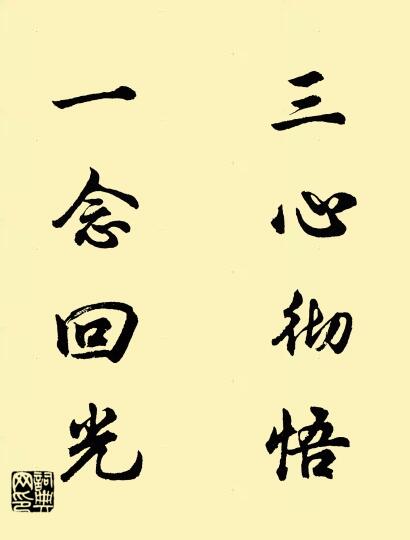 三心彻悟
一念回光
詞典网印